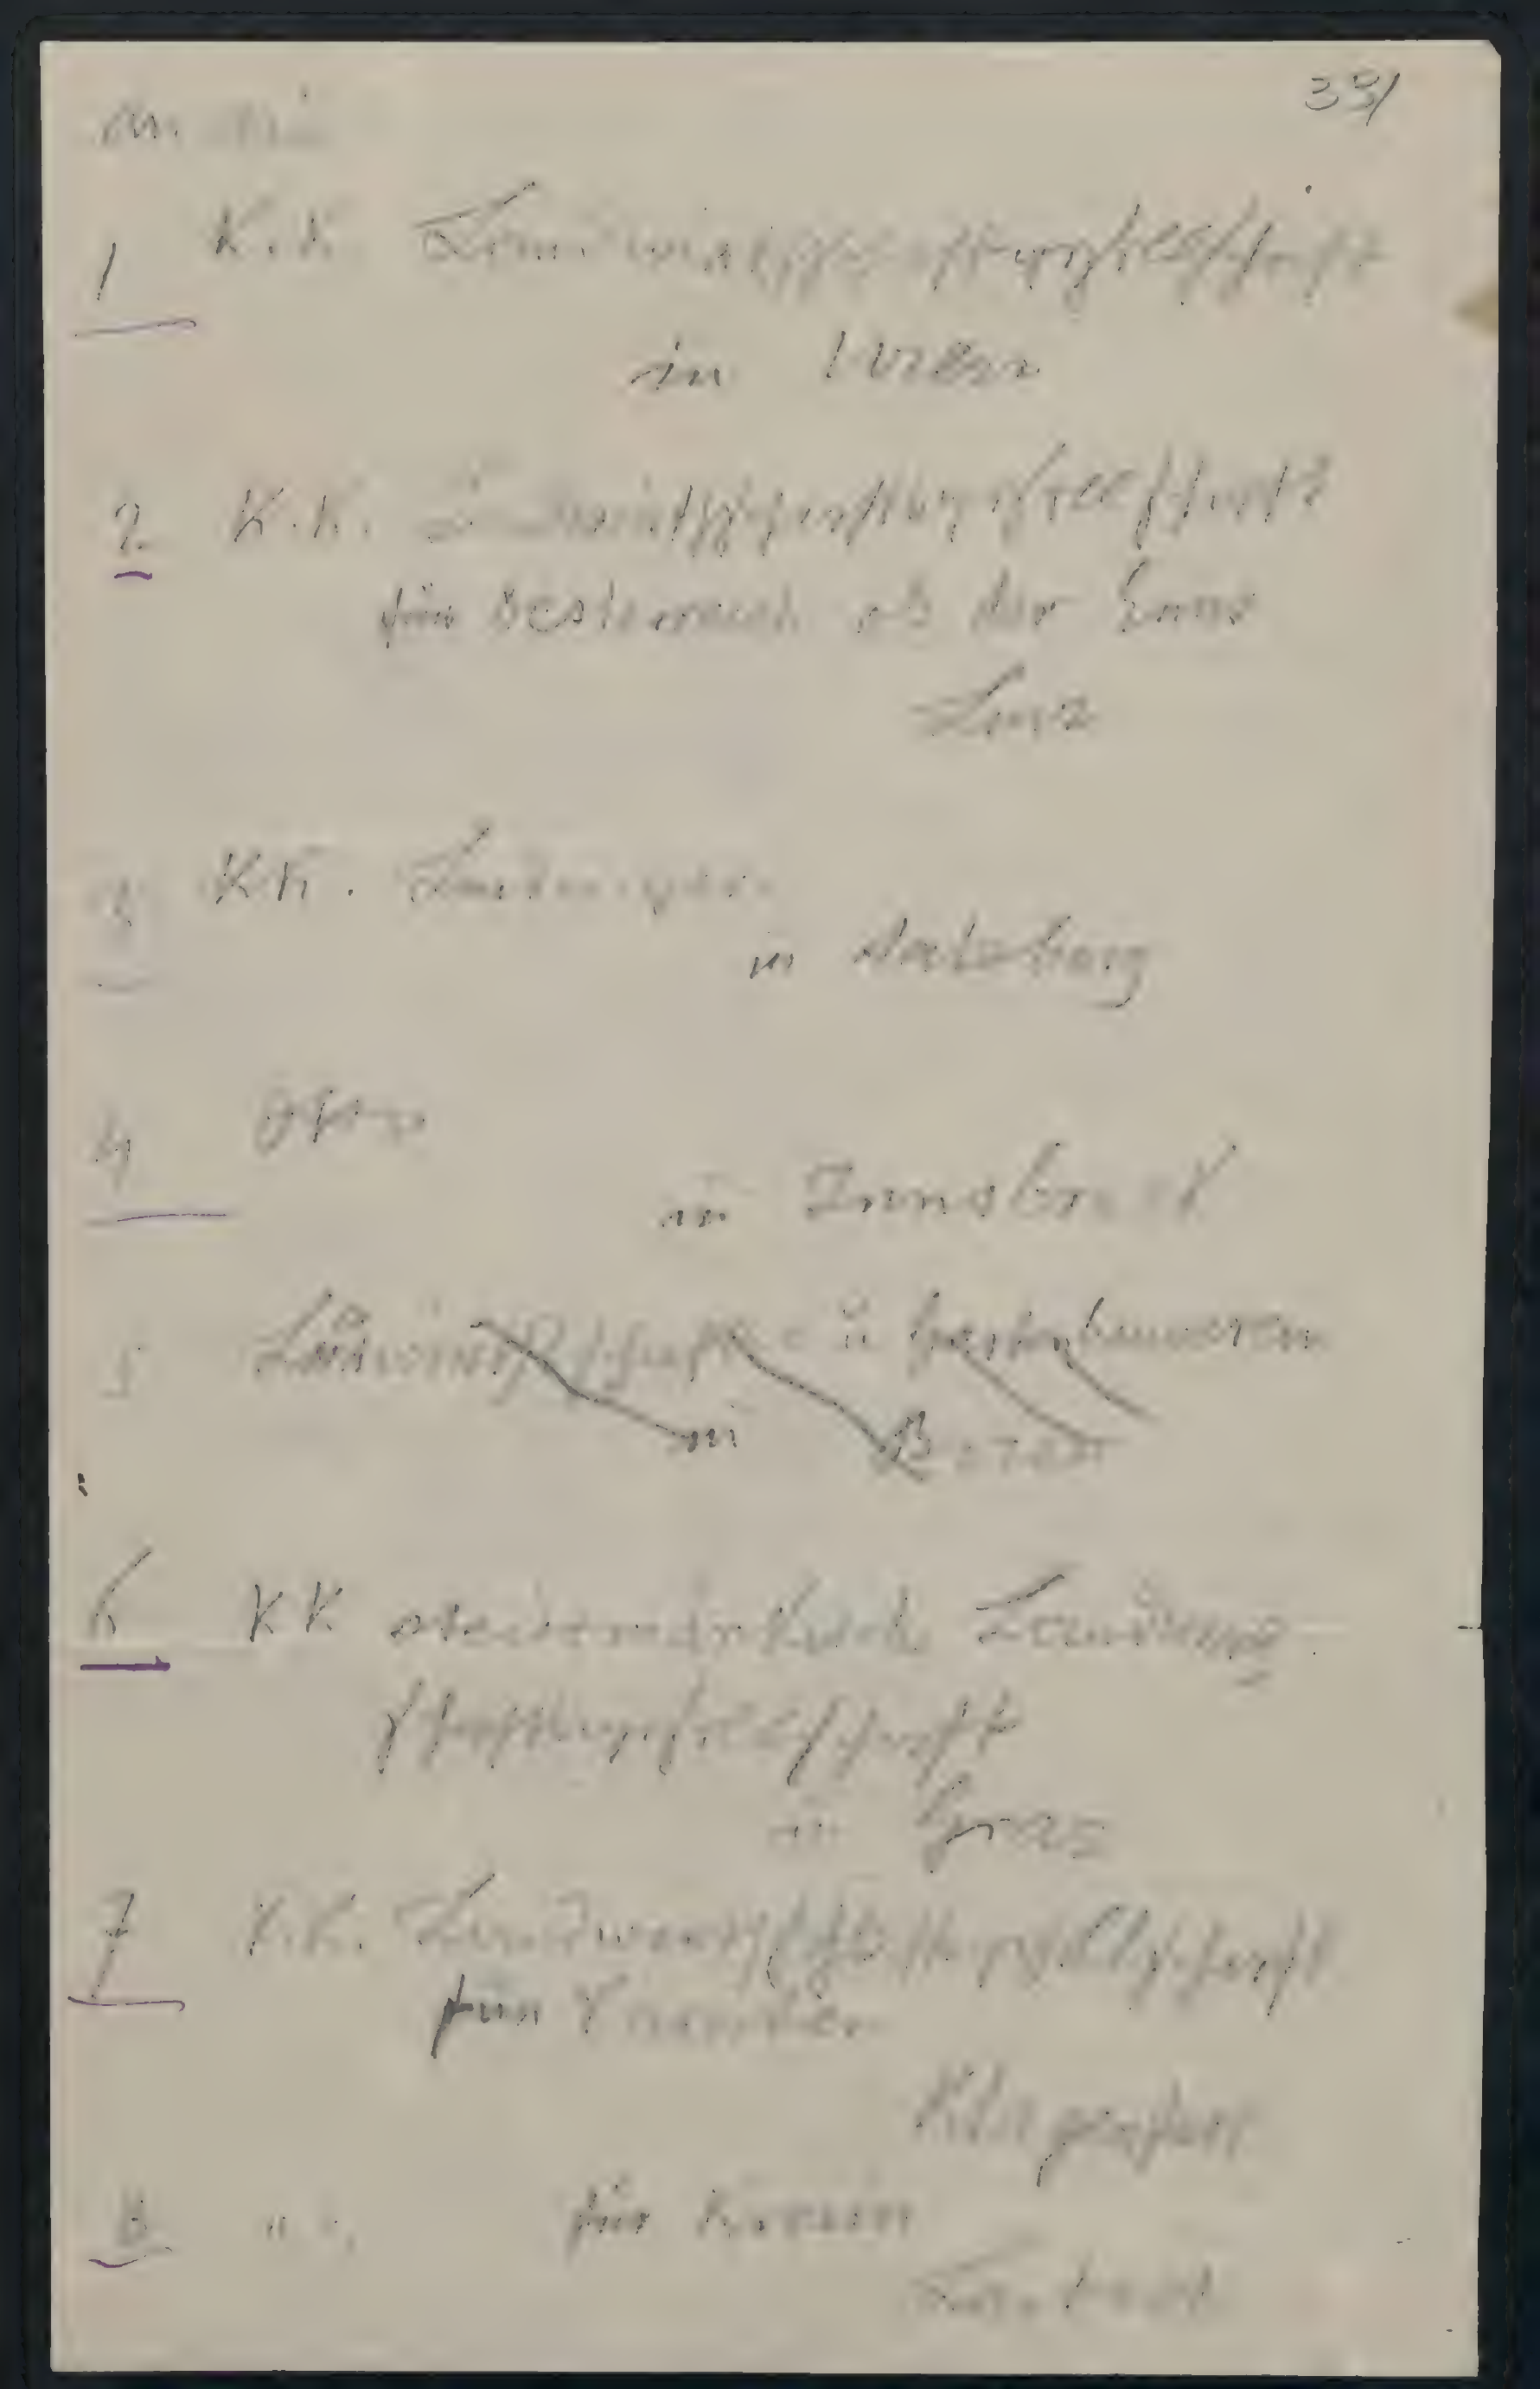 35/
1 K.K. Landwirtschaftsgesellschaft
in Wien
2 K.K. Landwirtschaftsgesellschaft
für Oesterreich ob der Enns
Linz
3 KK.
in Salzburg
4
in Innsbruck
5 Landwirtschaft - u Gartenbauverein
in Bozen
6 KK steiermärkisch Landwirt
schaftsgesellschaft
in Graz
7 K.K. Landwirtschaftsgesellschaft
für Kaernten
Klagenfurt
8 für Krain
Laibach